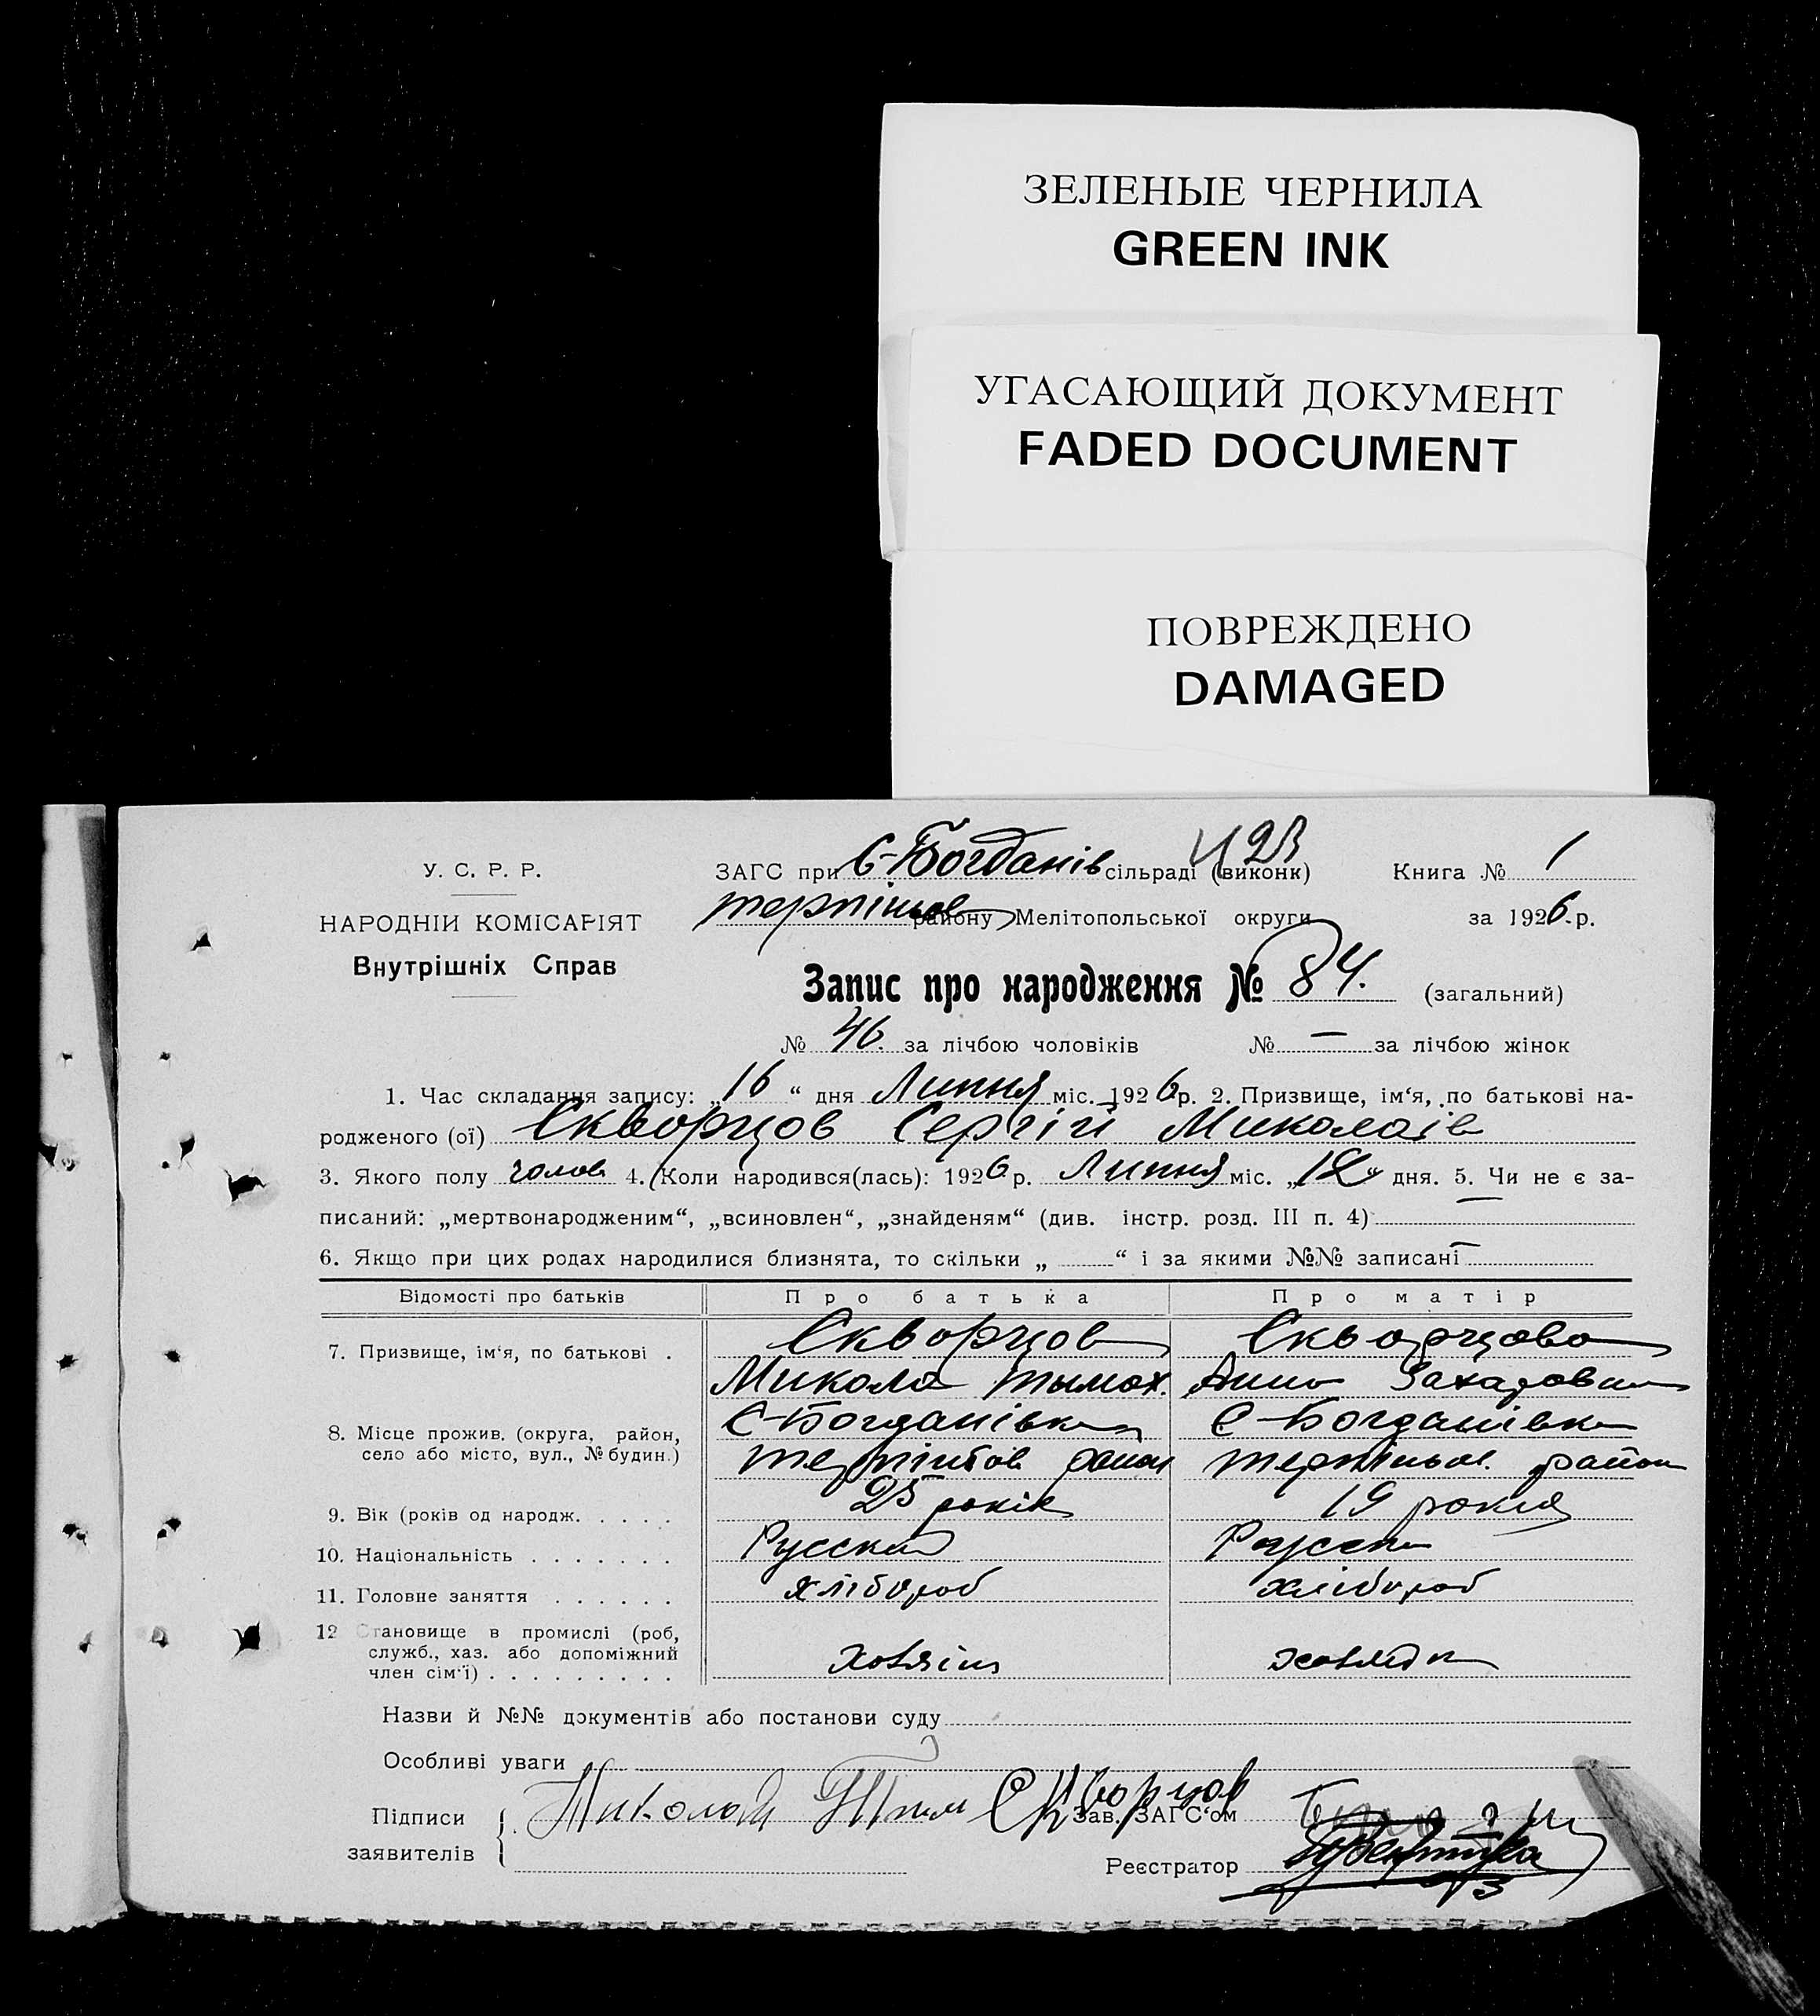 ЗЕЛЕНЫЕ ЧЕРНИЛА
GREEN INK
УГАСАЮЩИЙ ДОКУМЕНТ
FADED DOCUMENT
ПОВРЕЖДЕНО
DAMAGED
У. С. Р. Р.
НАРОДНІЙ КОМІСАРІЯТ
Внутрішніх Справ
ЗАГС при С-Богданів сільраді (виконк)
Книга № 1
району Мелітопольської округи
за 1926 р.
Запис про народження № 84. (загальний)
№ 46. за лічбою чоловіків № — за лічбою жінок
1. Час складання запису: „16“ дня Липня міс. 1926 р. 2. Призвище, ім‘я, по батькові на-
родженого (ої) Скворцов Сергій Миколаїв
3. Якого полу чолов 4. Коли народився(лась): 1926 р. Липня міс. „ “ дня. 5. Чи не є за-
писаний: „мертвонародженим“, „всиновлен“, „знайденям“ (див. інстр. розд. III п. 4) —
6. Якщо при цих родах народилися близнята, то скільки „ “ і за якими №№ записані —
Відомості про батьків Про батька Про матір
7. Призвище, ім‘я, по батькові . Скворцов Скворцова
Микола Тымох. Анна Захаровна
8. Місце прожив. (округа, район,
село або місто, вул., № будин.)
С-Богданівка С-Богданівка
район район
9. Вік (років од народж. . . . . 25 років 19 років
10. Національність . . . . . . . Русский Русска
11. Головне заняття . . . . . . хлібороб хлібороб
12 Становище в промислі (роб,
служб., хаз. або допоміжний
член сім‘ї) . . . . . . . . . хозяїн
Назви й №№ документів або постанови суду
Особливі уваги
Підписи
заявителів
Николай Тим Скворцов
Зав. ЗАГС‘ом
Реєстратор